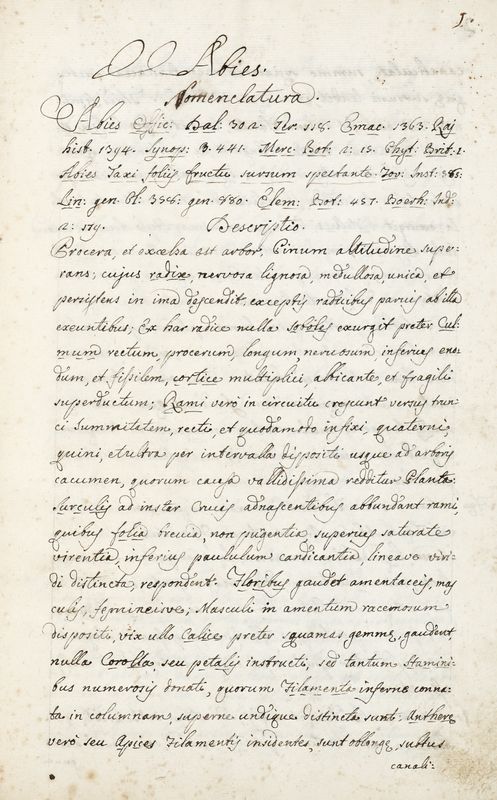 1.
Abies.
Nomenclatura.
Abies Offic: Dal: 30 2. Per. 118. Emac. 1363. Raj
hist. 1394. Synops: 3. 441. Merc. Bot: 2: 15. Phyt: Brit. 1.
Abies Taxi folijs fructu sursum spectante. Tor: Inst: 585:
Lin: gen. Pl: 358: gen: 880. Elem: Bot: 457. Boerh: Ind:
2: 179. Descriptio.
Procera, et excelsa est arbor, Pinum altitudine supe-
rans; cujus radix, nervosa lignosa, medullosa, unica, et
persistens in ima descendit, exceptis radicibus parvis ab illa
exeuntibus; Ex hac radice nulla soboles exurgit preter Cul-
mum rectum, procerum, longum nervosum, inferius eno-
dum, et fissilem, cortice multiplici, albicante, et fragili
superductum; Rami vero in circuitu crescunt versus trun-
ci summitetem, recti, et quodamoto infixi, quaterni,
quini, et ultra per intervalla dispositi usque ad arboris
cacumen, quorum causa vallidissima redditur Planta.
Surculis ad inster Crucis adnascentibus abbundant rami,
quibus folia brevia, non pugentia, superius saturate
virentia, inferius paululum candicantia, lineave viri-
di distincta, respondent. Floribus gaudet amentaceis, mas
culis, femineisve; Masculi in amentum racemosum
dispositi, vix ullo Calice preter squamas gemme, gaudent
nulla Corolla seu petalis instructi, sed tantum stamini-
bus numerosis donati, quorum Filamenta inferne conna-
ta in columnam, superne undique distincta sunt. Anthere
vero seu Apices Filamentis insidentes, sunt oblonge, subtus
canali-